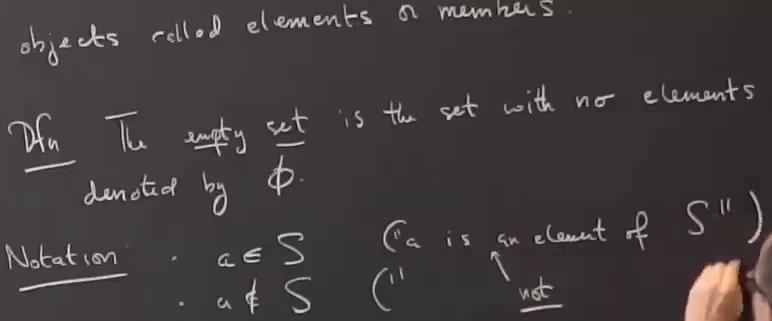 objects called elements or members.
Dfn The empty set is the set with no elements
denoted by ϕ.
Notation: · a ∈ S ("a is an element of S")
· a ∉ S (" not